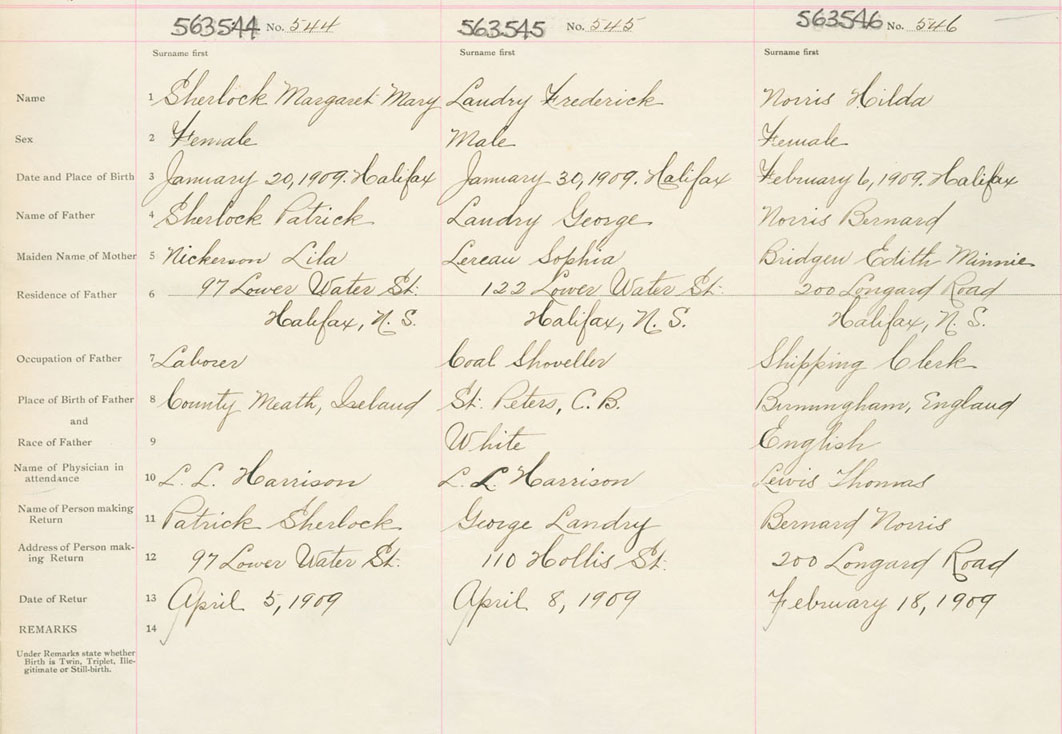 563544 No. 544 563545 No. 545 563546 No. 546
Surname first Surname first Surname first
Name 1 Sherlock Margaret Mary Landry Frederick Norris Hilda
Sex 2 Female Male Female
Date and Place of Birth 3 January 20, 1909. Halifax January 30, 1909. Halifax February 6, 1909. Halifax
Name of Father 4 Sherlock Patrick Landry George Norris Bernard
Maiden Name of Mother 5 Nickerson Lila Lereau Sophia Bridgen Edith Minnie
Residence of Father 6 97 Lower Water St. 122 Lower Water St. 200 Longard Road
Halifax, N. S. Halifax, N. S. Halifax, N. S.
Occupation of Father 7 Laborer Coal Shoveller Shipping Clerk
Place of Birth of Father 8 County Meath, Ireland St. Peters, C. B. Birmingham, England
and
Race of Father 9 White English
Name of Physician in
attendance 10 L. L. Harrison L. L. Harrison Lewis Thomas
Name of Person making
Return 11 Patrick Sherlock George Landry Bernard Norris
Address of Person mak-
ing Return 12 97 Lower Water St. 110 Hollis St. 200 Longard Road
Date of Retur 13 April 5, 1909 April 8, 1909 February 18, 1909
REMARKS 14
Under Remarks state whether
Birth is Twin, Triplet, Ille-
gitimate or Still-birth.